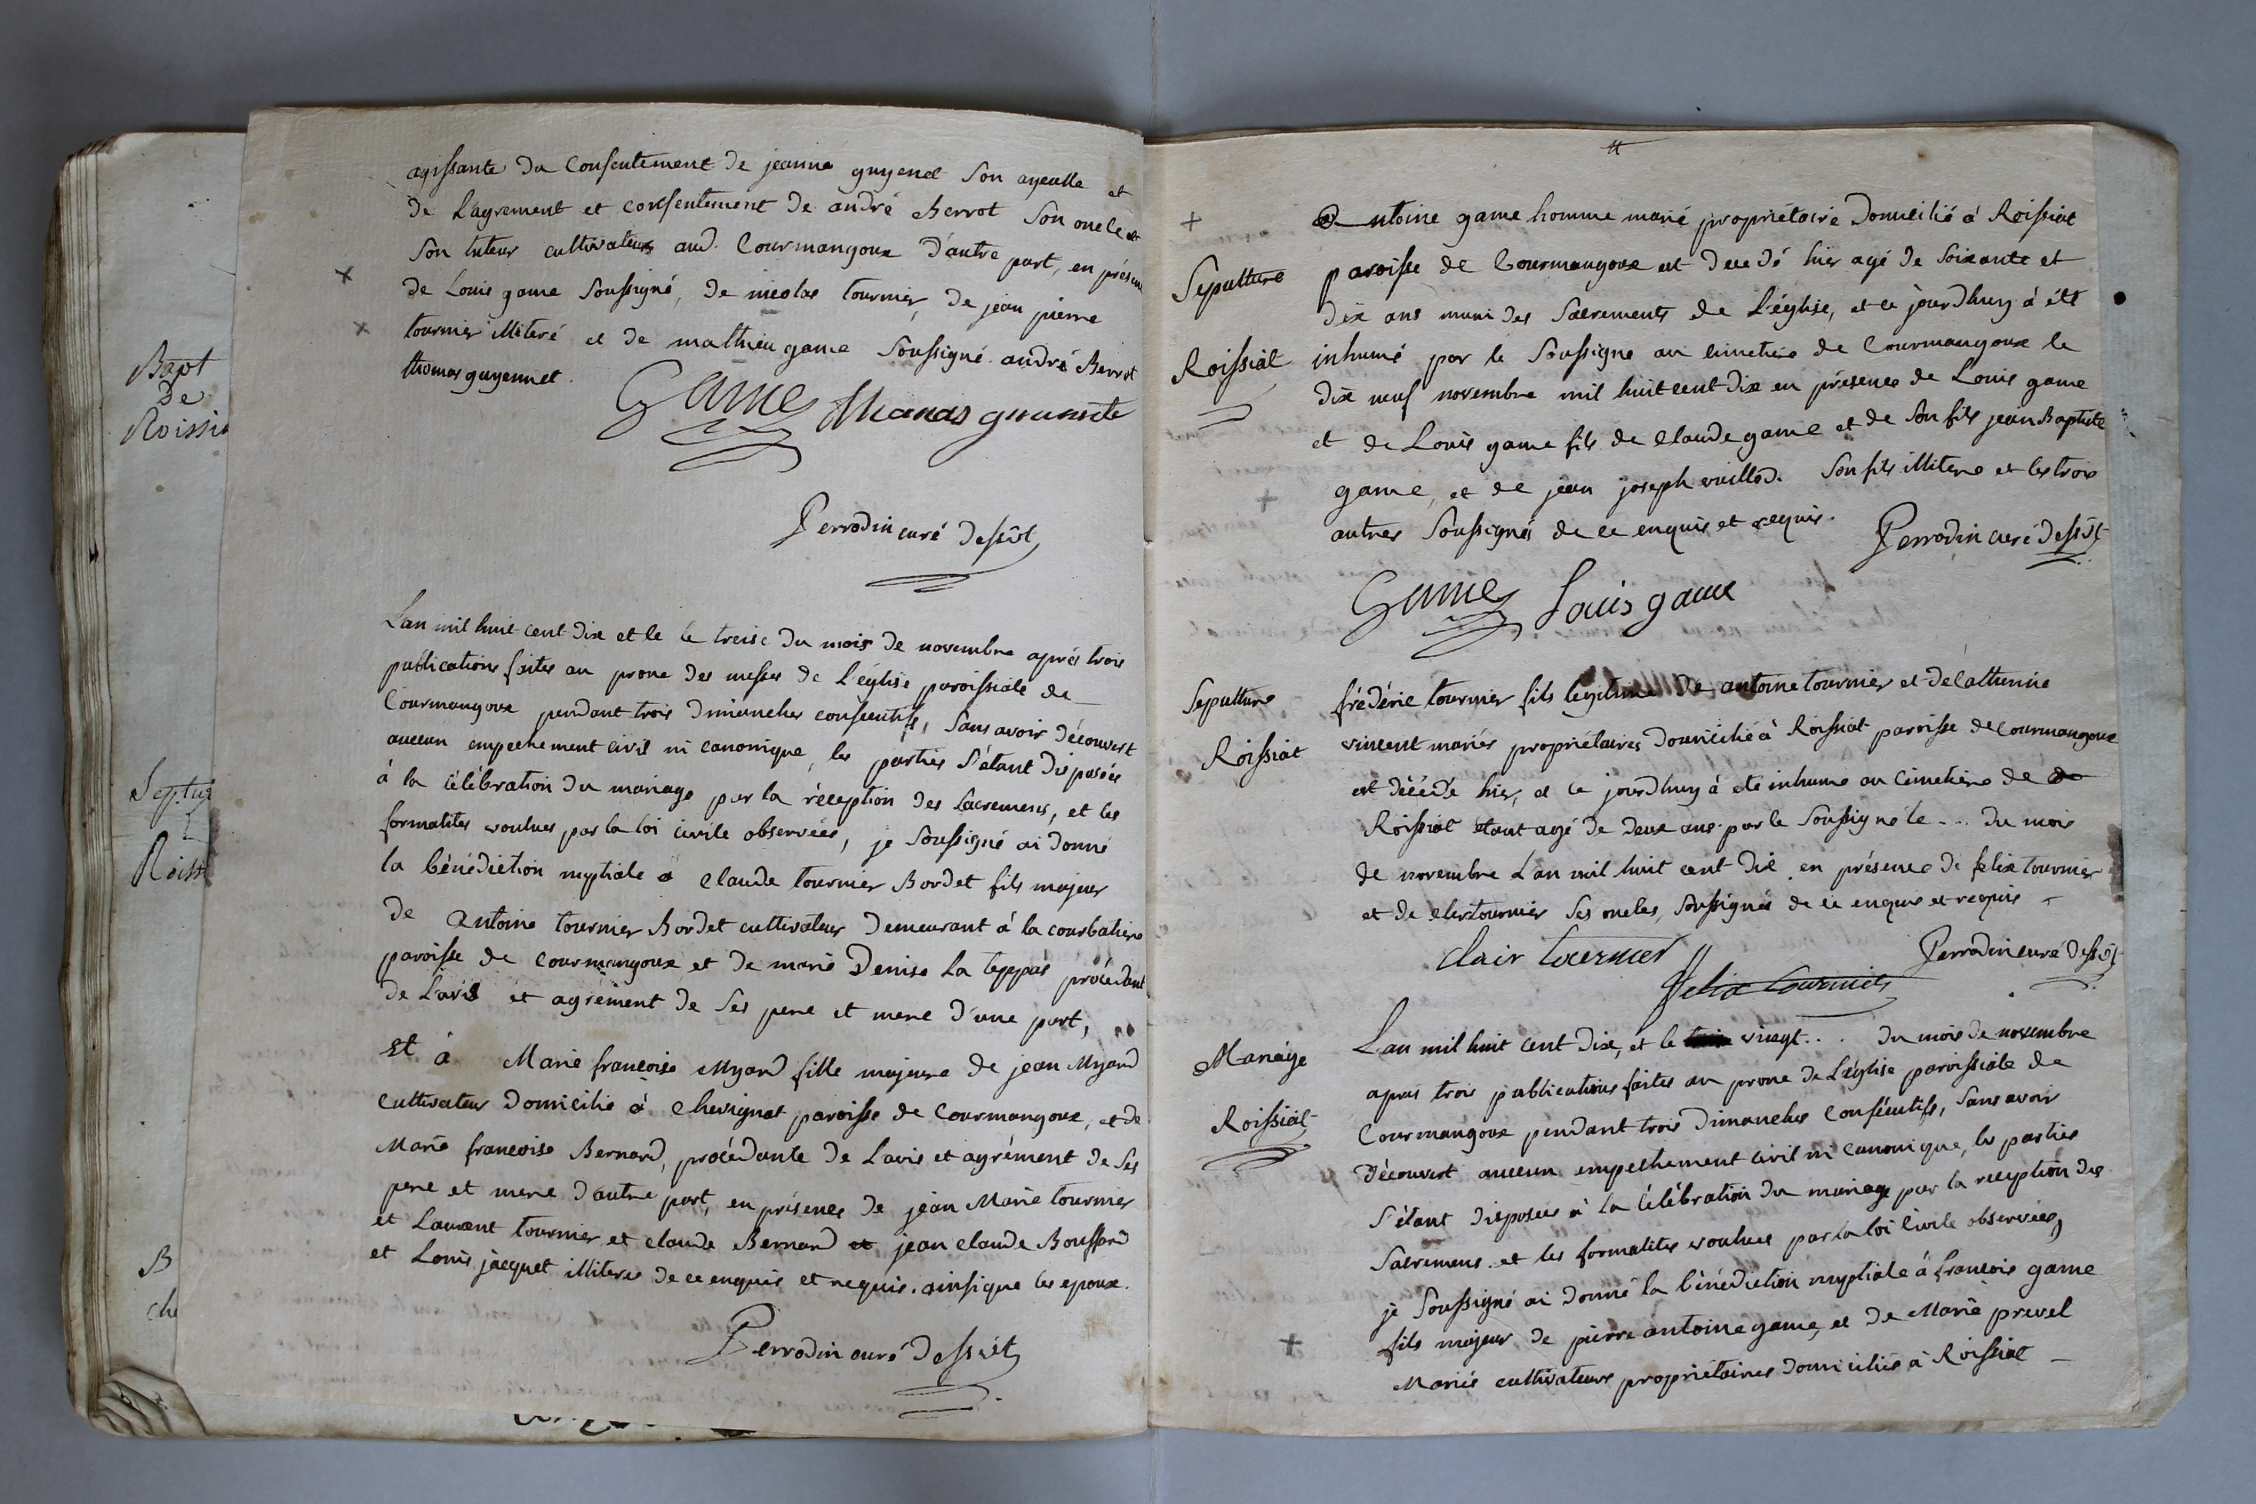 Bapt
De
Roissia
Septu
Roiss
B
che
agissante du Consentement de jeanne guyenet Son ayeulle et
de L'agrement et consentement de andré Berrot Son oncle et
Son tuteur cultivateurs aud. Courmangoux d'autre part, en présence
de Louis game Soussigné, de nicolas tournier, de jean pierre
tournier illiteré et de mathieu game Soussigné. andré Berrot
thomas guyennet.
Game Thomas
Perrodin curé dessũt
L'an mil huit cent dix et le le treise du mois de novembre aprés trois
publications faites au prone des messes de L'église paroissiale de
Courmangoux pendant trois dimanches consecutifs, Sans avoir découvert
aucun empechement civil ni canonique, les parties S'étant disposées
à la célébration du mariage par la réception des Sacremens, et les
formalités voulues par la loi civile observées, je Soussigné ai donné
la bénédiction nuptiale à claude tournier Bordet fils majeur
de antoine tournier Bordet cultivateur demeurant à la courbatiere
paroisse de courmangoux et de marie Denise La teppas procédant
de L'avis et agrément de Ses pere et mere d'une part,
et à Marie francoise Myard fille majeure de jean Myard
cultivateur domicilié à chevignat paroisse de Courmangoux, et de
Marie francoise Bernard, procédante de L'avis et agrément de Ses
pere et mere d'autre part, en présence de jean Marie tournier
et Laurent tournier et claude Bernard et jean claude Bouffard
et Louis jacquet illiteres de ce enquis et requis. ainsi que les epoux.
Perrodin curé dessũt
+
Sepulture
Roissiat
Antoine game homme marié propriétaire domicilié à Roissiat
paroisse de Courmangoux est decedé hier agé de Soixante et
dix ans muni des Sacrements de L'église, et ce jourdhuy à été
inhumé par le Soussigne au cimetiere de Courmangoux le
dix neuf novembre mil huit cent dix en présence de Louis game
et de Louis game fils de claude game et de Son fils jean Baptiste
game, et de jean joseph vuillod. Son fils illitere et les trois
autres Soussignés de ce enquis et requis.
Perrodin curé dessũt
Game Louis game
Sepulture
Roissiat
frédéric tournier fils legitime de antoine tournier et de catherine
vincent mariés propriétaires domicilié à Roissiat paroisse de courmangoux
est décédé hier, et ce jourdhuy à été inhumé au Cimetiere de
Roissiat etant agé de deux ans par le Soussigné le ... du mois
de novembre L'an mil huit cent dix en présence de felix tournier
et de clertournier Ses oncles, Soussignés de ce enquis et requis
Perrodin curé dessũt
clair tournier
felix tournier
Mariage
Roissiat
L'an mil huit cent dix, et le vingt ... du mois de novembre
apres trois publications faites au prone de L'église paroissiale de
Courmangoux pendant trois Dimanches Consécutifs, Sans avoir
découvert aucun empechement civil ni canonique, les parties
S'étant disposées à la célébration du mariage par la reception des
Sacremens et les formalités voulues par la loi civile observées,
je Soussigné ai donné la bénédiction nuptiale à francois game
fils majeur de pierre antoine game, et de Marie prevel
Mariés cultivateurs propriétaires domiciliés à Roissiat